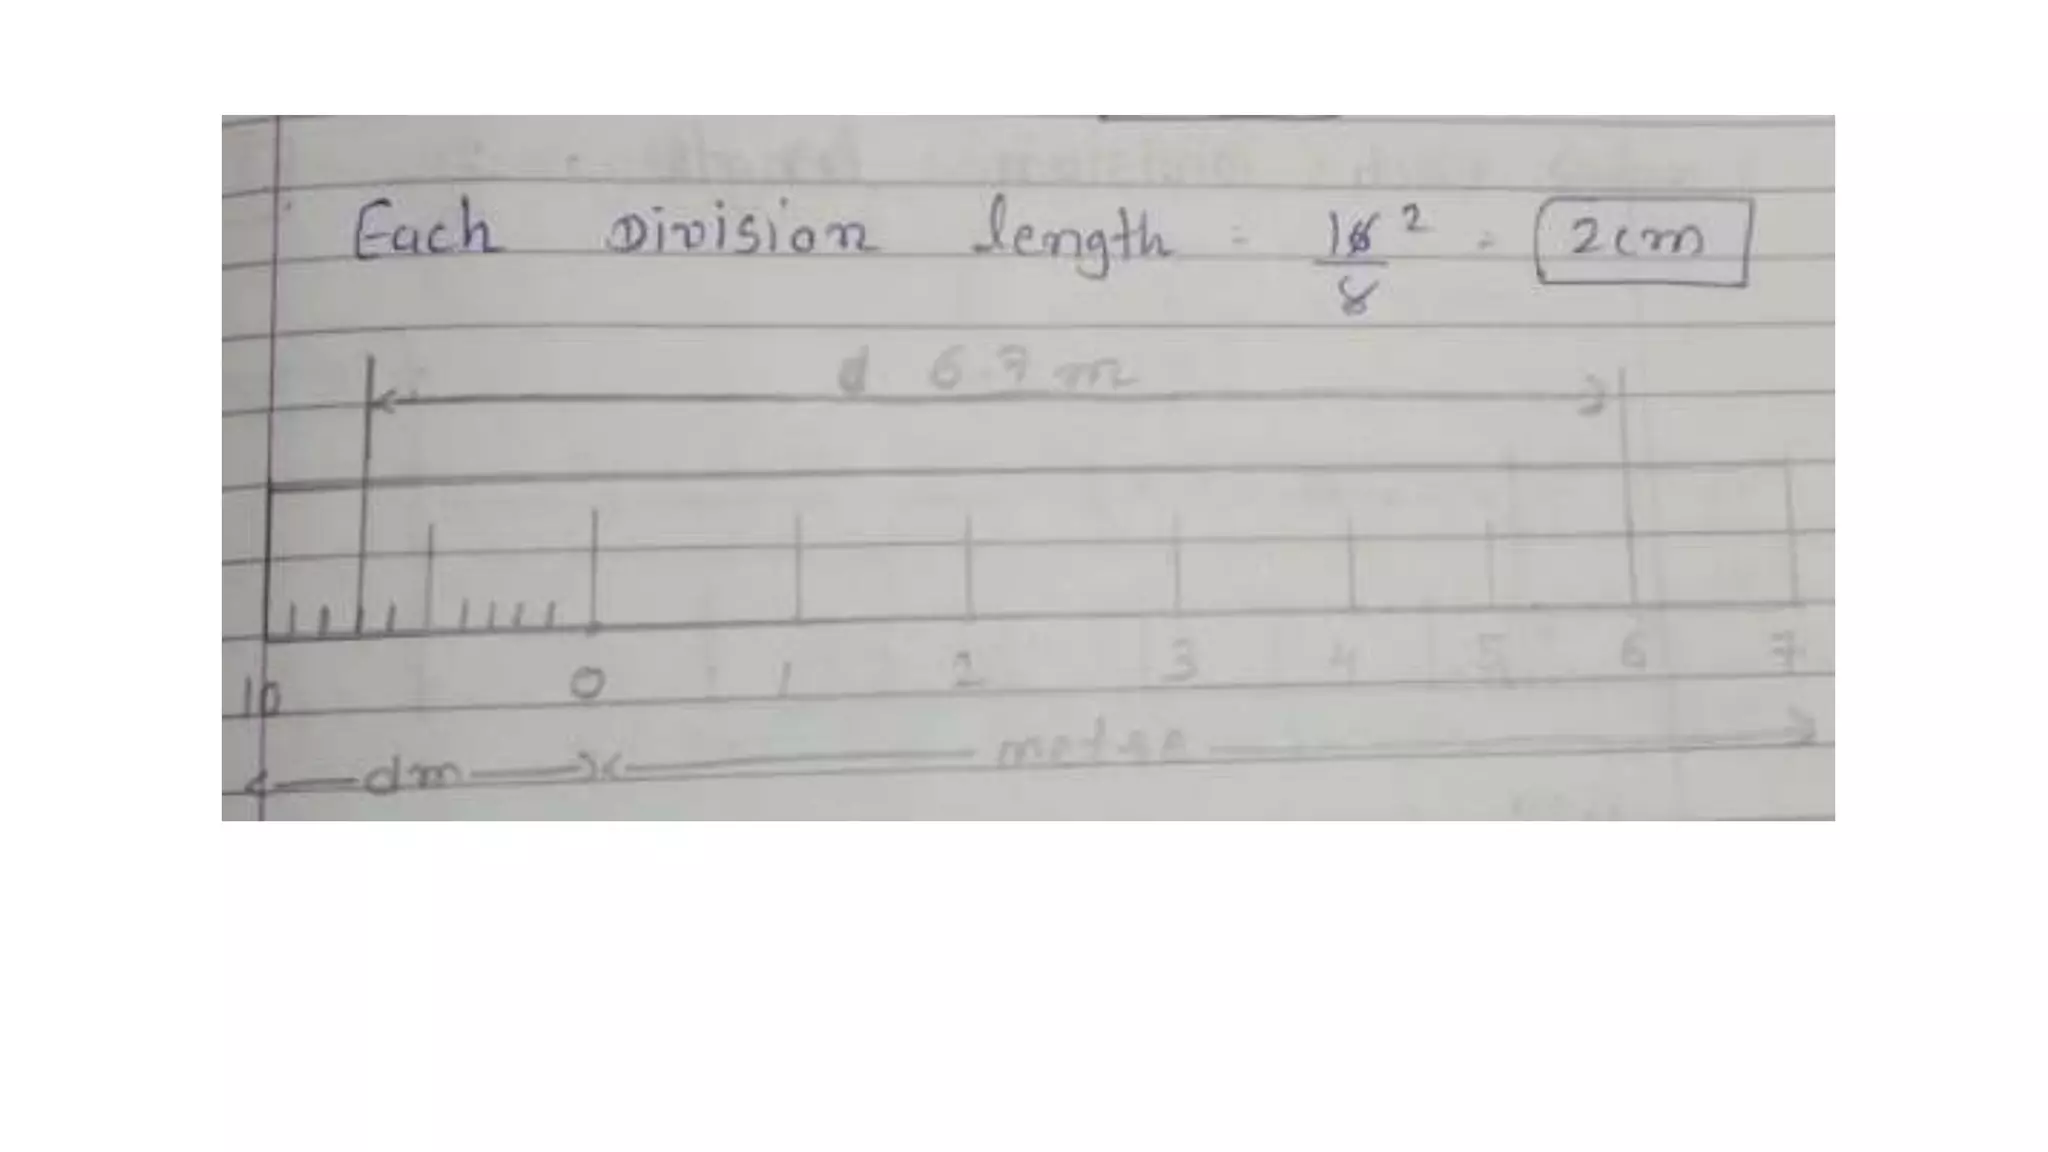 Each Division length = 16 2 / 8 = 2cm
d 6.7 m
10 0 1 2 3 4 5 6 7
dm meter